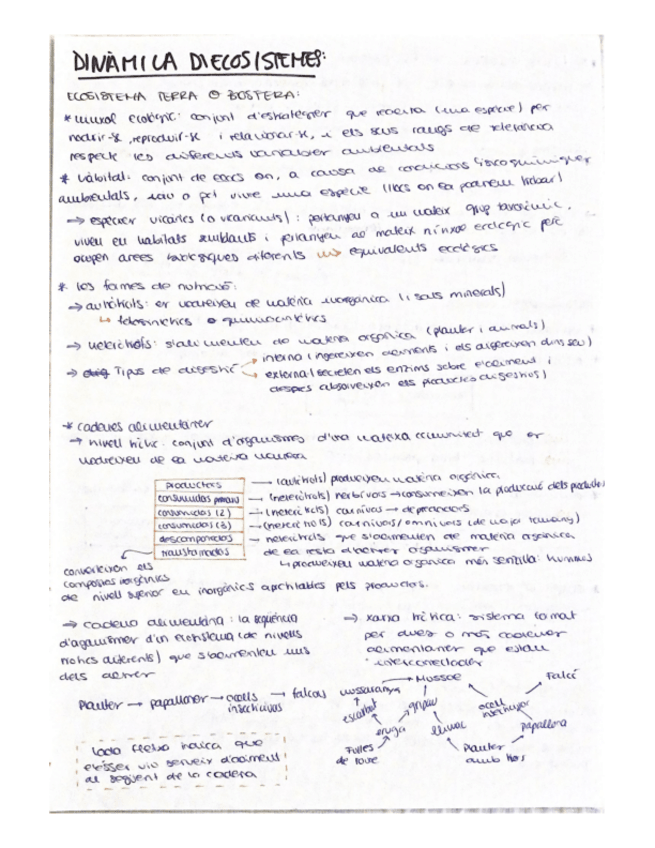 DINÀMICA D'ECOSISTEMES:
ECOSISTEMA TERRA O BIOSFERA:
* nínxol ecològic: conjunt d'estratègies que necessita (una espècie) per
nodrir-se, reproduir-se i relacionar-se, i els seus rangs de tolerància
respecte les diferents variables ambientals
* hàbitat: conjunt de llocs on, a causa de condicions fisicoquímiques
ambientals, viu o pot viure una espècie (llocs on la podem trobar)
→ espècies vicàries (o vicariants): pertanyen a un mateix grup taxonòmic,
viuen en hàbitats semblants i pertanyen al mateix nínxol ecològic però
ocupen àrees biològiques diferents → equivalents ecològics
* les formes de nutrició:
→ autòtrofs: es nodreixen de matèria inorgànica (i sals minerals)
↳ fotosintètics o quimiosintètics
→ heteròtrofs: s'alimenten de matèria orgànica (plantes i animals)
→ Tipus de digestió → interna (ingereixen aliments i els digereixen dins seu)
→ externa (secreten els enzims sobre l'aliment i
després absorveixen els productes digestius)
* cadenes alimentàries
→ nivell tròfic: conjunt d'organismes d'una mateixa comunitat que es
nodreixen de la mateixa manera
productors — (autòtrofs) produeixen matèria orgànica
consumidors primaris — (heteròtrofs) herbívors → consumeixen la producció dels productors
consumidors (2) — (heteròtrofs) carnívors → depredadors
consumidors (3) — (heteròtrofs) carnívors/omnívors (de major tamany)
descomponedors — heteròtrofs que s'alimenten de matèria orgànica
transformadors de la resta d'altres organismes
↳ produeixen matèria orgànica més senzilla: humus
converteixen els
compostos inorgànics
de nivell superior en inorgànics aprofitables pels productors.
→ cadena alimentària: la seqüència
d'organismes d'un ecosistema (de nivells
tròfics diferents) que s'alimenten uns
dels altres
→ xarxa tròfica: sistema format
per dues o més cadenes
alimentàries que estan
interconectades
Plantes → papallones → ocells insectívors → falcons
Mussol
Falcó
musaranya
escarbat
gripau
ocell insectívor
eruga
llimac
papallona
Fulles de roure
Plantes amb flors
Cada fletxa indica que
l'ésser viu serveix d'aliment
al següent de la cadena